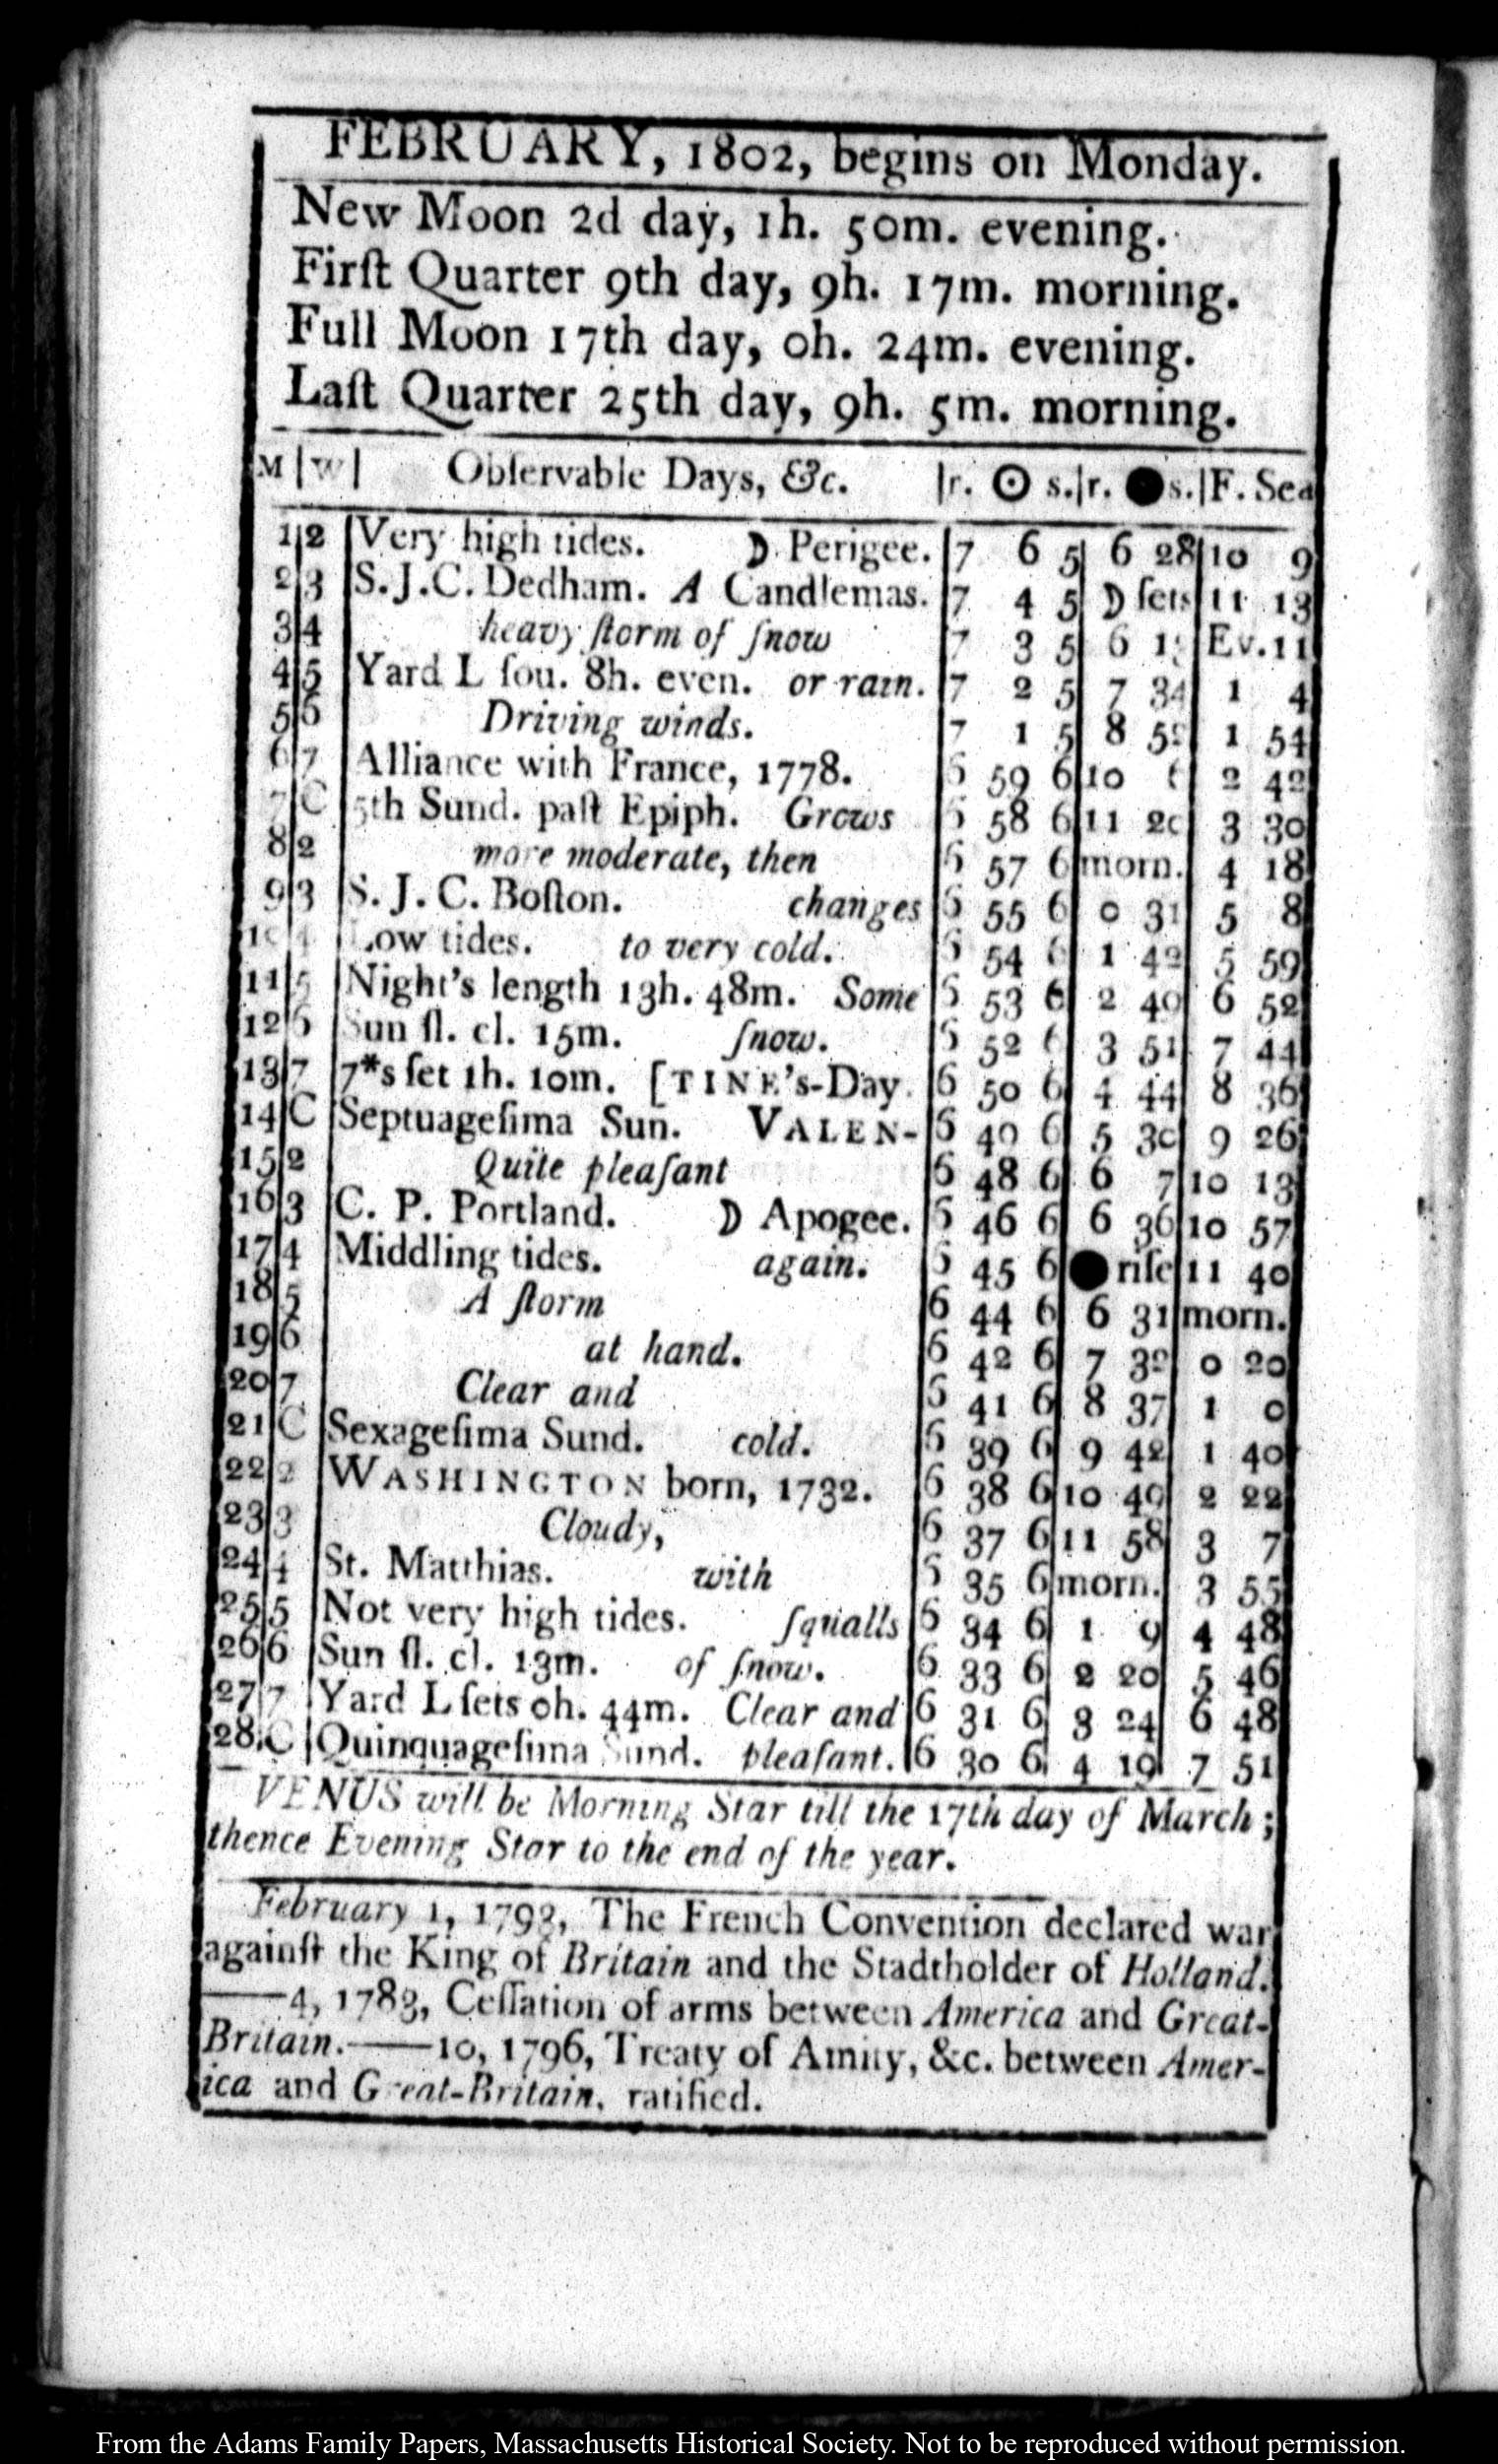 FEBRUARY, 1802, begins on Monday.
New Moon 2d day, 1h. 50m. evening.
Firſt Quarter 9th day, 9h. 17m. morning.
Full Moon 17th day, 0h. 24m. evening.
Laſt Quarter 25th day, 9h. 5m. morning.
M|W| Obſervable Days, &c. |r. ☉ s.|r. ●s.|F. Sea
1|2 |Very high tides. ☽ Perigee. |7 6 5| 6 28|10 9
2|3 |S.J.C. Dedham. A Candlemas. |7 4 5| ☽ ſets|11 13
3|4 heavy ſtorm of ſnow |7 3 5| 6 |Ev.11
4|5 |Yard L ſou. 8h. even. or rain. |7 2 5| 7 34| 1 4
5|6 Driving winds. |7 1 5| 8 | 1 54
6|7 |Alliance with France, 1778. |6 59 6|10 | 2 42
7|C |5th Sund. paſt Epiph. Grows |6 58 6|11 20| 3 30
8|2 more moderate, then |6 57 6|morn.| 4 18
9|3 |S. J. C. Boſton. changes |6 55 6| 0 31| 5 8
10|4 |Low tides. to very cold. |6 54 6| 1 42| 5 59
11|5 |Night's length 13h. 48m. Some |6 53 6| 2 49| 6 52
12|6 |Sun ſl. cl. 15m. ſnow. |6 52 6| 3 51| 7 44
13|7 |7*s ſet 1h. 10m. [TINE's-Day. |6 50 6| 4 44| 8 36
14|C |Septuageſima Sun. VALEN- |6 49 6| 5 30| 9 26
15|2 Quite pleaſant |6 48 6| 6 7|10 13
16|3 |C. P. Portland. ☽ Apogee. |6 46 6| 6 36|10 57
17|4 |Middling tides. again. |6 45 6|●riſe|11 40
18|5 A ſtorm |6 44 6| 6 31|morn.
19|6 at hand. |6 42 6| 7 32| 0 20
20|7 Clear and |6 41 6| 8 37| 1 0
21|C |Sexageſima Sund. cold. |6 39 6| 9 42| 1 40
22|2 |WASHINGTON born, 1732. |6 38 6|10 49| 2 22
23|3 Cloudy, |6 37 6|11 58| 3 7
24|4 |St. Matthias. with |6 35 6|morn.| 3 55
25|5 |Not very high tides. ſqualls |6 34 6| 1 9| 4 48
26|6 |Sun ſl. cl. 13m. of ſnow. |6 33 6| 2 20| 5 46
27|7 |Yard L ſets 0h. 44m. Clear and |6 31 6| 3 24| 6 48
28|C |Quinquageſima Sund. pleaſant. |6 30 6| 4 19| 7 51
VENUS will be Morning Star till the 17th day of March;
thence Evening Star to the end of the year.
February 1, 1793, The French Convention declared war
againſt the King of Britain and the Stadtholder of Holland.
——4, 1783, Ceſſation of arms between America and Great-
Britain.——10, 1796, Treaty of Amity, &c. between Amer-
ica and Great-Britain, ratified.
From the Adams Family Papers, Massachusetts Historical Society. Not to be reproduced without permission.